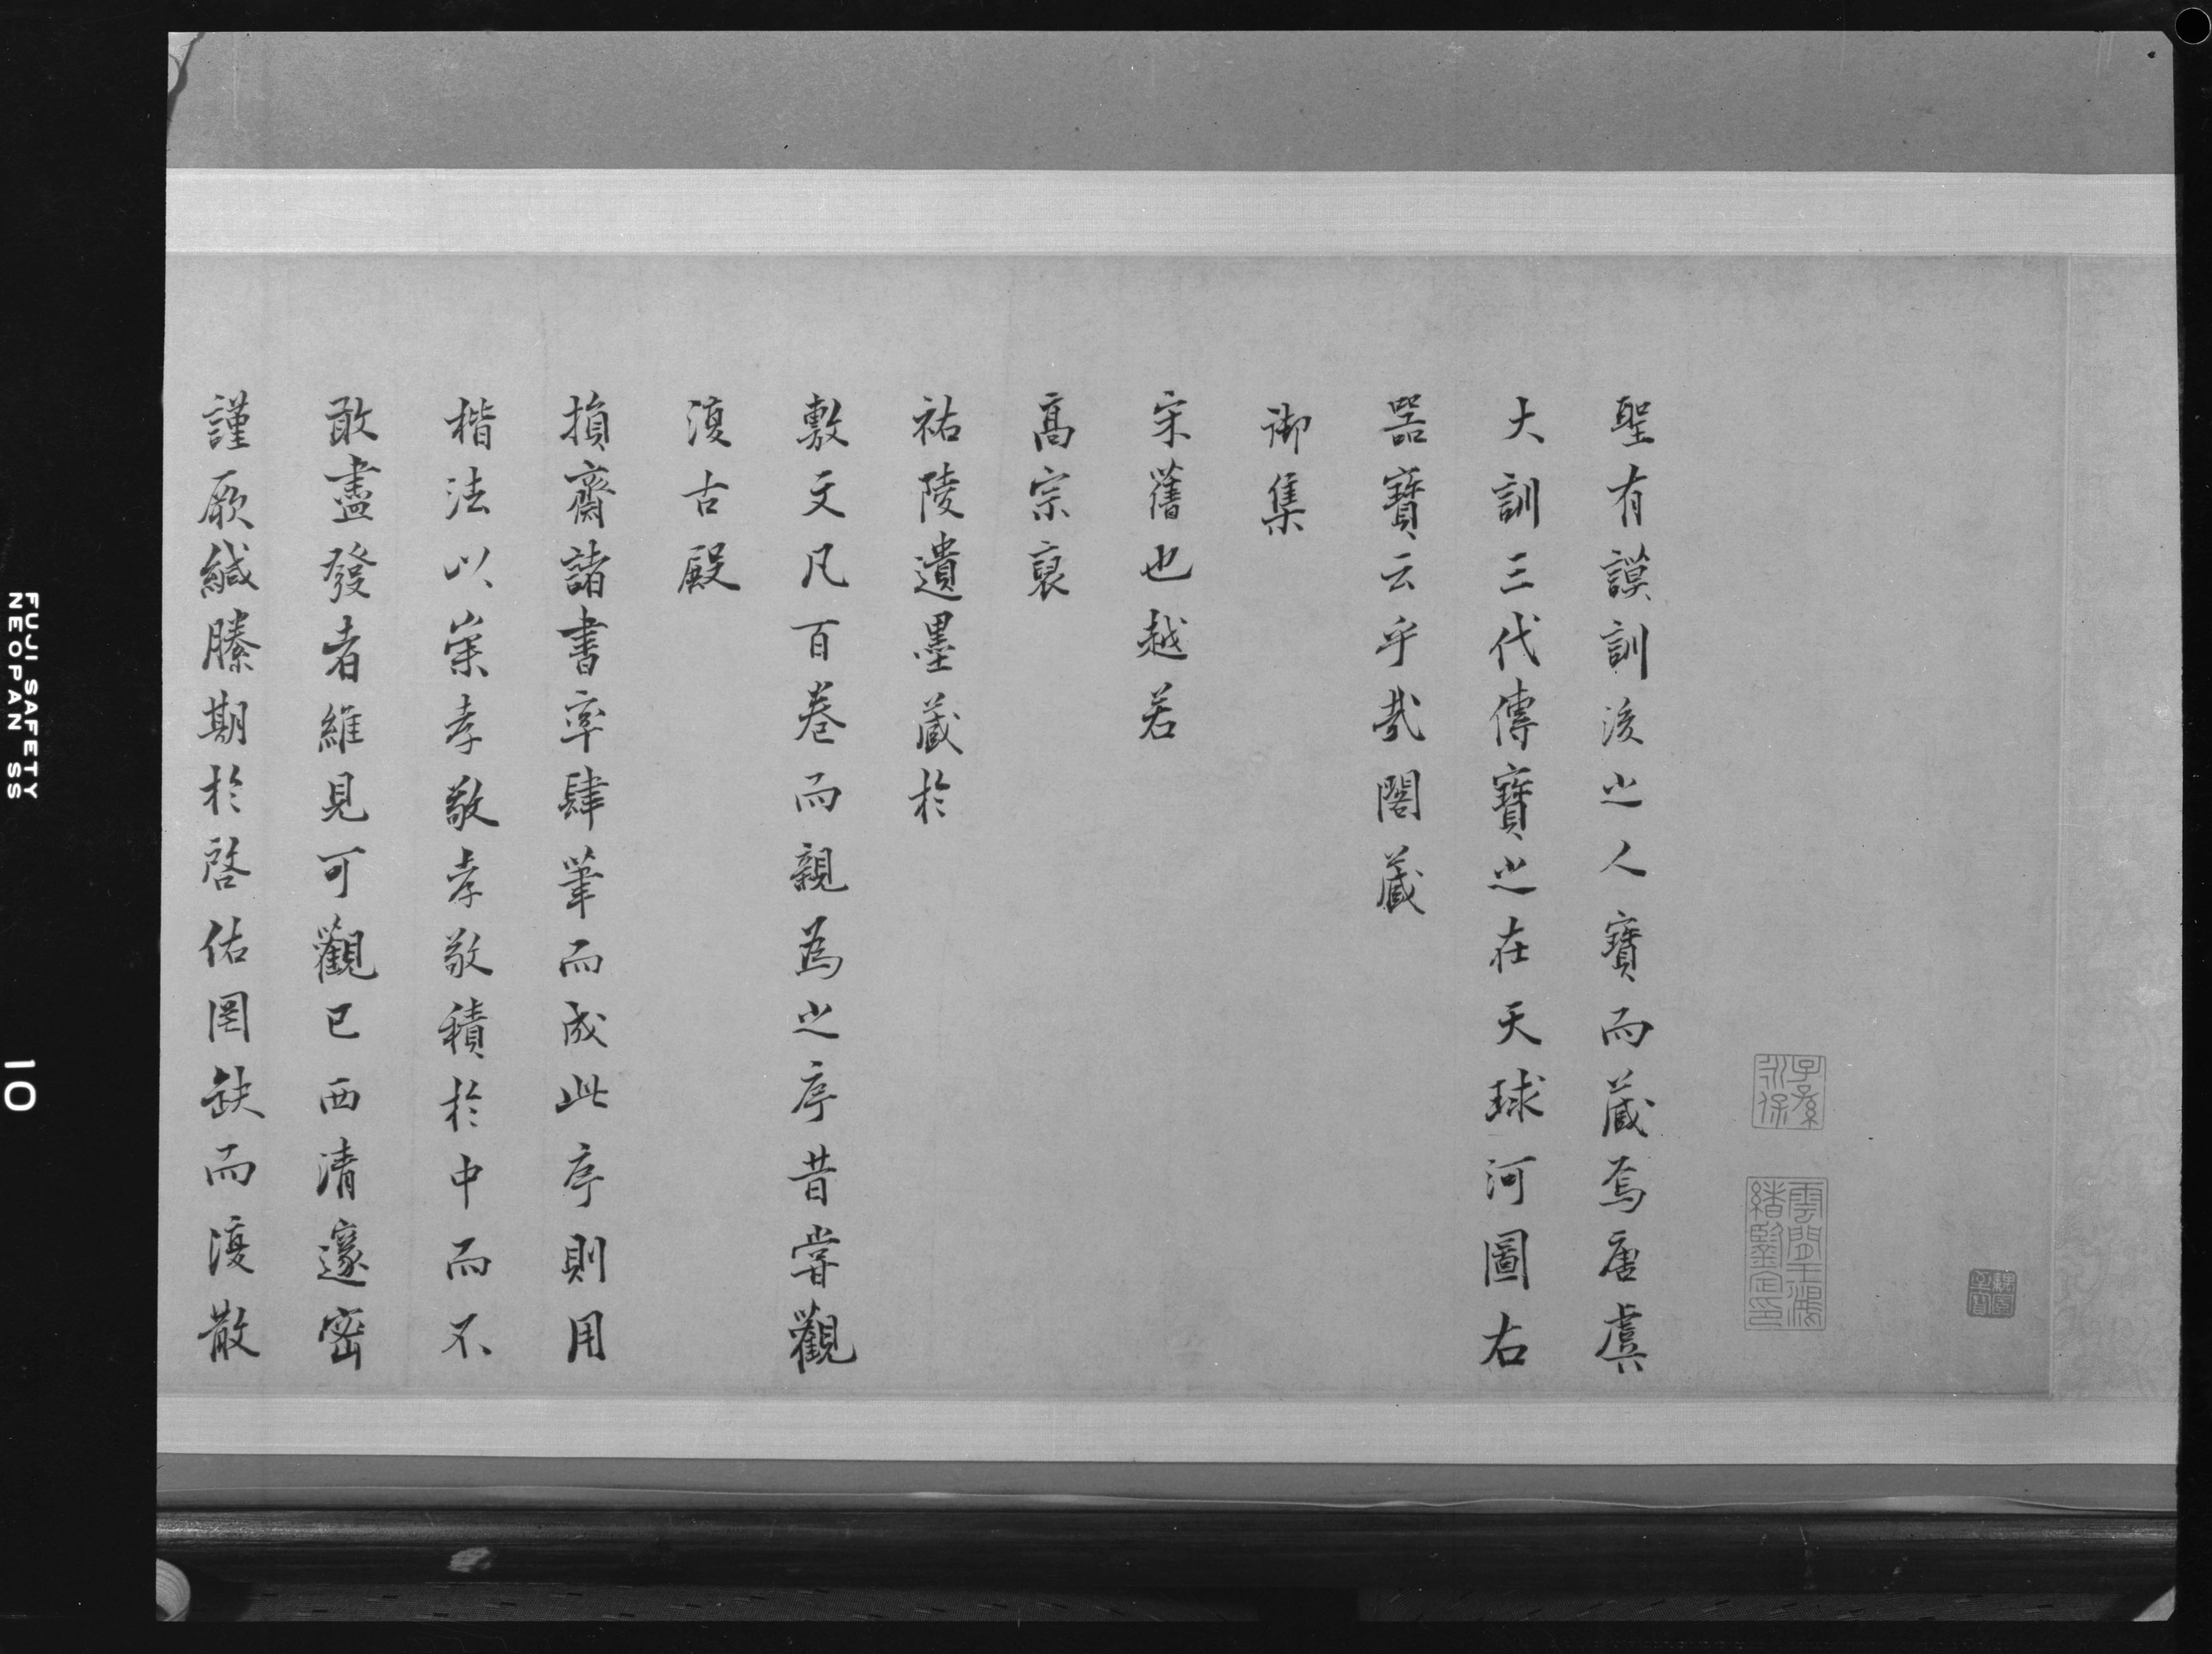 聖有謨訓後之人寶而蔵焉唐虞
大訓三代傳寶之在天球河圖右
器寶云乎㦲閣蔵
御集
宋舊也越若
髙宗裒
祐陵遺墨蔵於
敷文凡百巻而親為之序昔嘗觀
復古殿
損齋諸書率肆筆而成此序則用
楷法以崇孝敬孝敬積於中而不
敢盡發者維見可觀已西清邃密
謹厥緘縢期於啓佑罔缺而復散
子孫
永保
雲間王鴻
緒鑒定印
FUJI SAFETY
NEOPAN SS
10